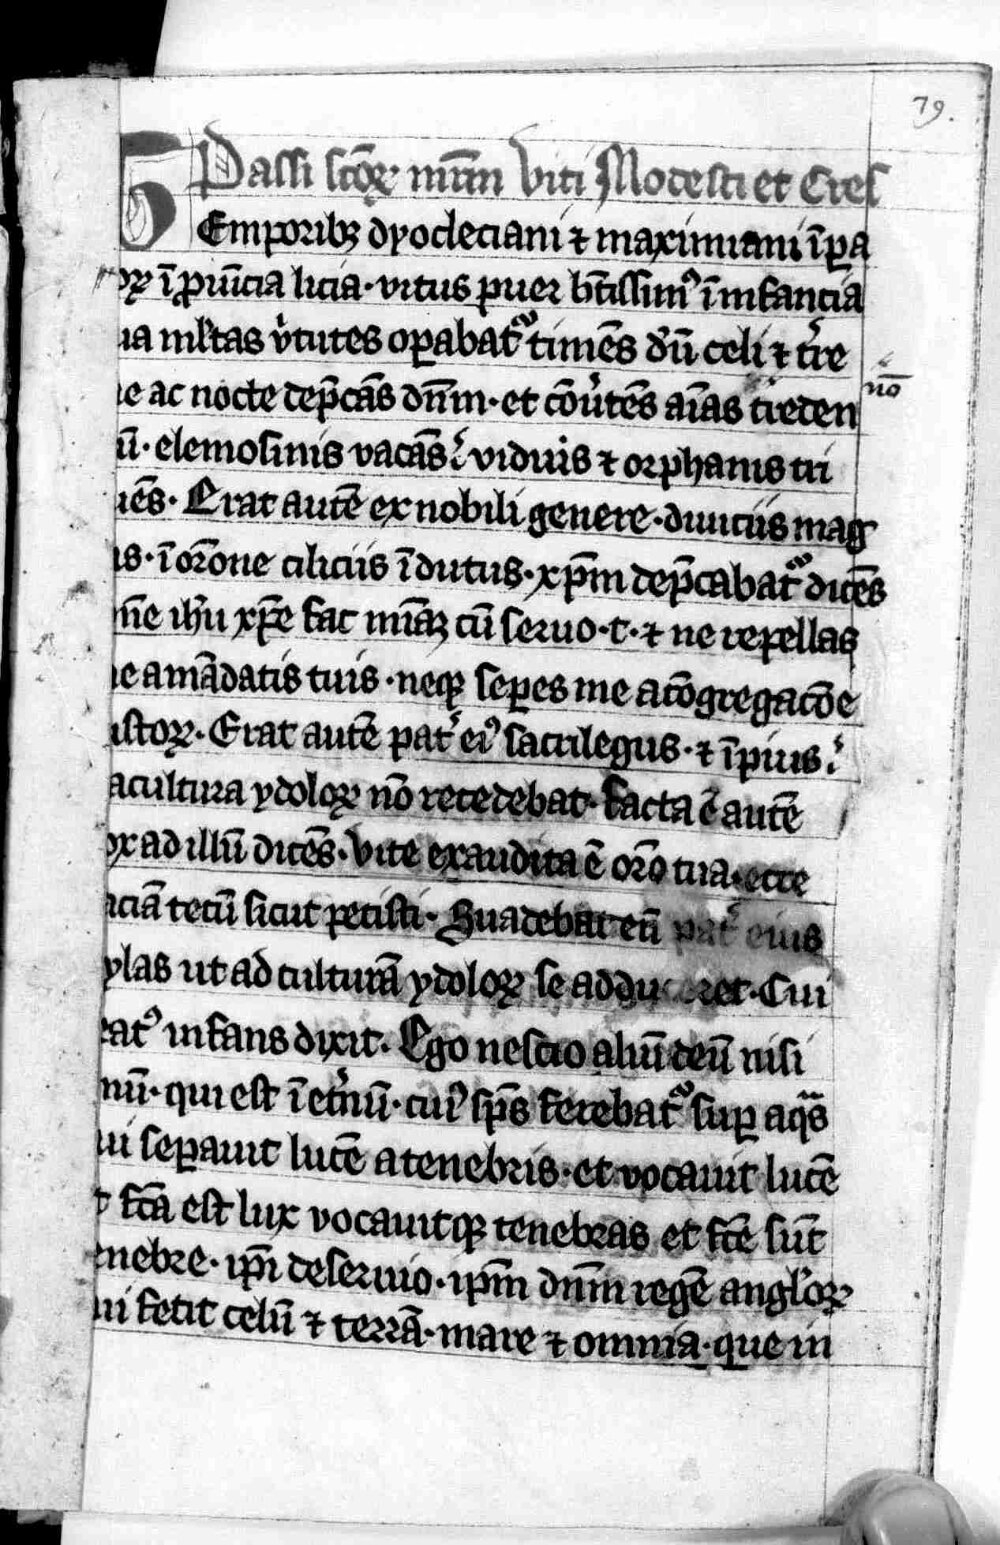 79.
Passi sc̄oꝝ mr̄m Viti Modesti et Cres
TEmporibꝫ dyocleciani ⁊ maximiani īꝑa
oꝝ ī ꝓuīcia licia · vitus puer bt̄issimꝰ ī infancia
ua ml̉tas v̓tutes oꝑabat᷑ timēs dm̄ celi ⁊ t̓re
ie ac nocte dep̄cās dn̄m · et cōu̓tēs aīas creden
no
iū · elemosinis vacās ⁊ viduis ⁊ orphanis tri
uēs · Erat autē ex nobili genere · diuiciis mag
is · ī or̄one ciliciis īdutus · xp̄m dep̄cabat᷑ dicēs
n̄e ih̄u xp̄e fac mīaꝫ cū seruo · t · ⁊ ne repellas
e a mādatis tuis · neqꝫ seꝑes me a cōgregacōe
ustoꝝ · Erat autē pat̓ eiꝰ sacrilegus · ⁊ īpius ⁊
a cultura ydoloꝝ nō recedebat · facta ē autē
ox ad illū dicēs · Vite exaudita ē or̄o tua · ecce
aciā tecū sicut petisti · Suadebat eū pat̓ eius
ylas ut ad culturā ydoloꝝ se adduceret · Cui
eatꝰ infans dixit · Ego nescio aliū deū nisi
nū · qui est ī et̓nū · cuiꝰ sp̄s ferebat᷑ suꝑ aq̄s
ui seꝑauit lucē a tenebris · et vocauit lucē
t fc̄a est lux vocauitqꝫ tenebras et fc̄e sūt
enebre · ip̄i deseruio · ip̄m dn̄m regē angl̓oꝝ
ui fecit celū ⁊ terrā · mare ⁊ omnia · que in